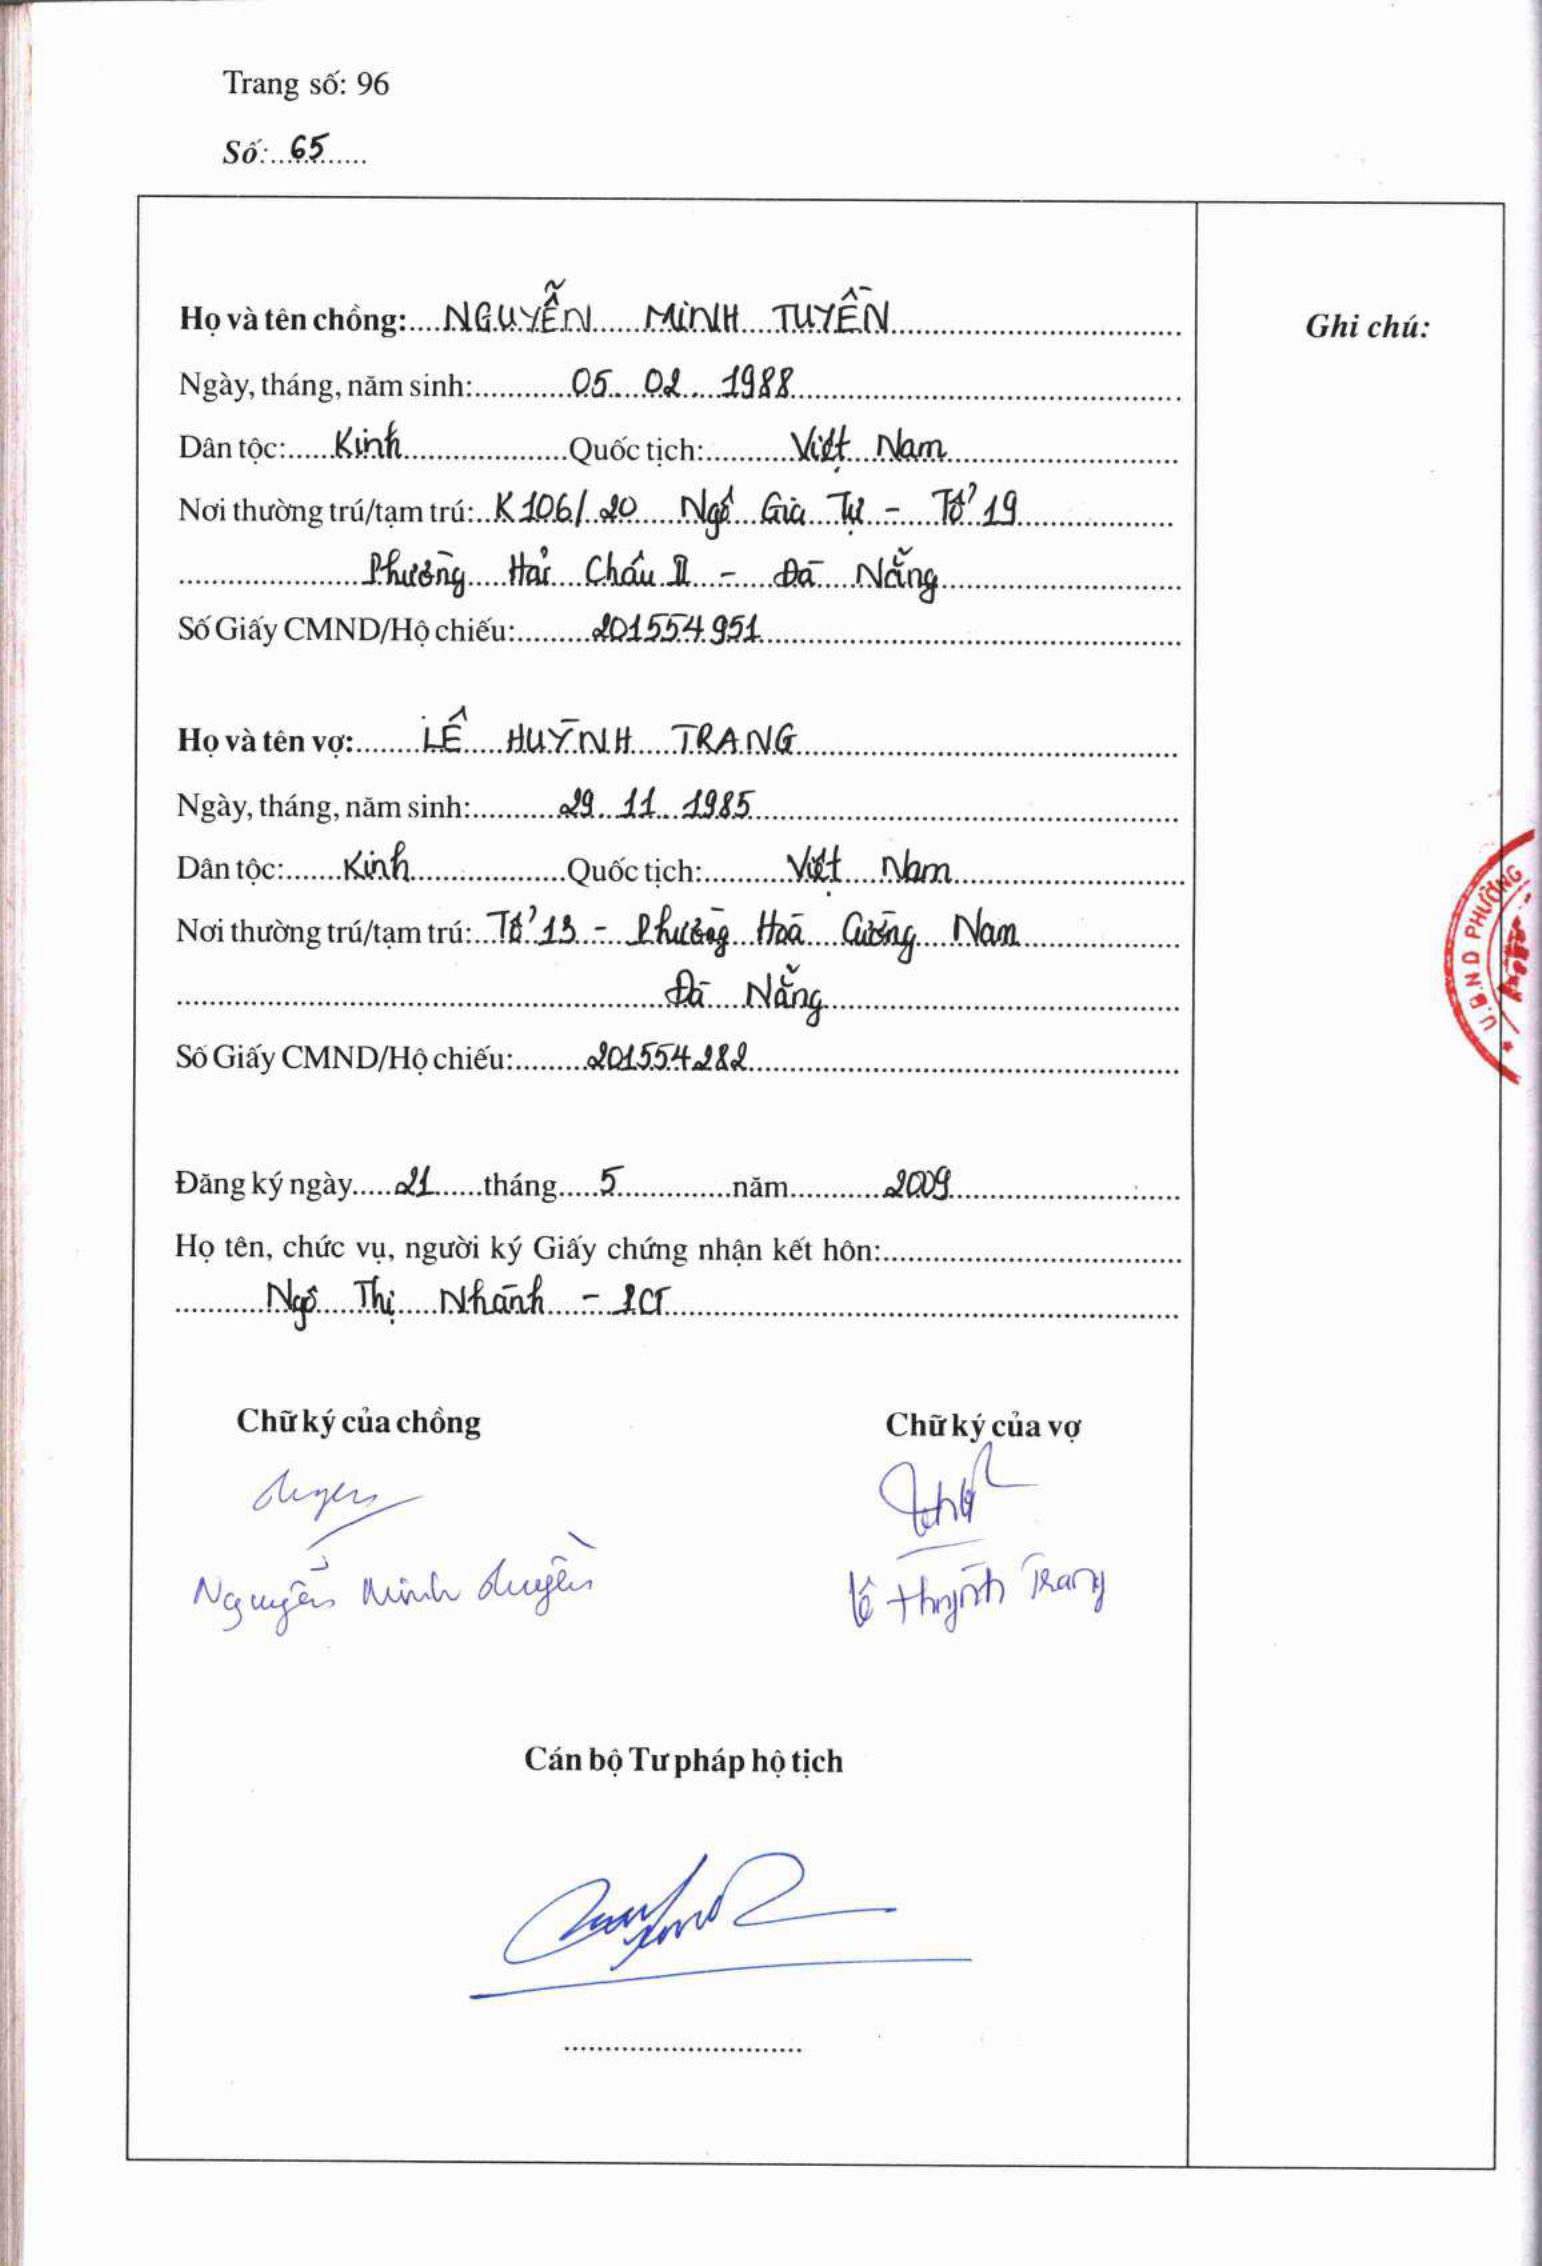 Trang số: 96
Số: 65
Họ và tên chồng: NGUYỄN MINH TUYỀN
Ghi chú:
Ngày, tháng, năm sinh: 05 02 1988
Dân tộc: Kinh Quốc tịch: Việt Nam
Nơi thường trú/tạm trú: K106/20 Ngô Gia Tự - Tổ 19
Phường Hải Châu II - Đà Nẵng
Số Giấy CMND/Hộ chiếu: 201554951
Họ và tên vợ: LÊ HUỲNH TRANG
Ngày, tháng, năm sinh: 29 11 1985
Dân tộc: Kinh Quốc tịch: Việt Nam
Nơi thường trú/tạm trú: Tổ 13 - Phường Hoà Cường Nam
Đà Nẵng
Số Giấy CMND/Hộ chiếu: 201554282
U.B.N.D PHƯỜNG
Đăng ký ngày 21 tháng 5 năm 2009
Họ tên, chức vụ, người ký Giấy chứng nhận kết hôn:
Ngô Thị Nhành - PCT
Chữ ký của chồng Chữ ký của vợ
Nguyễn Minh Tuyền Lê Huỳnh Trang
Cán bộ Tư pháp hộ tịch